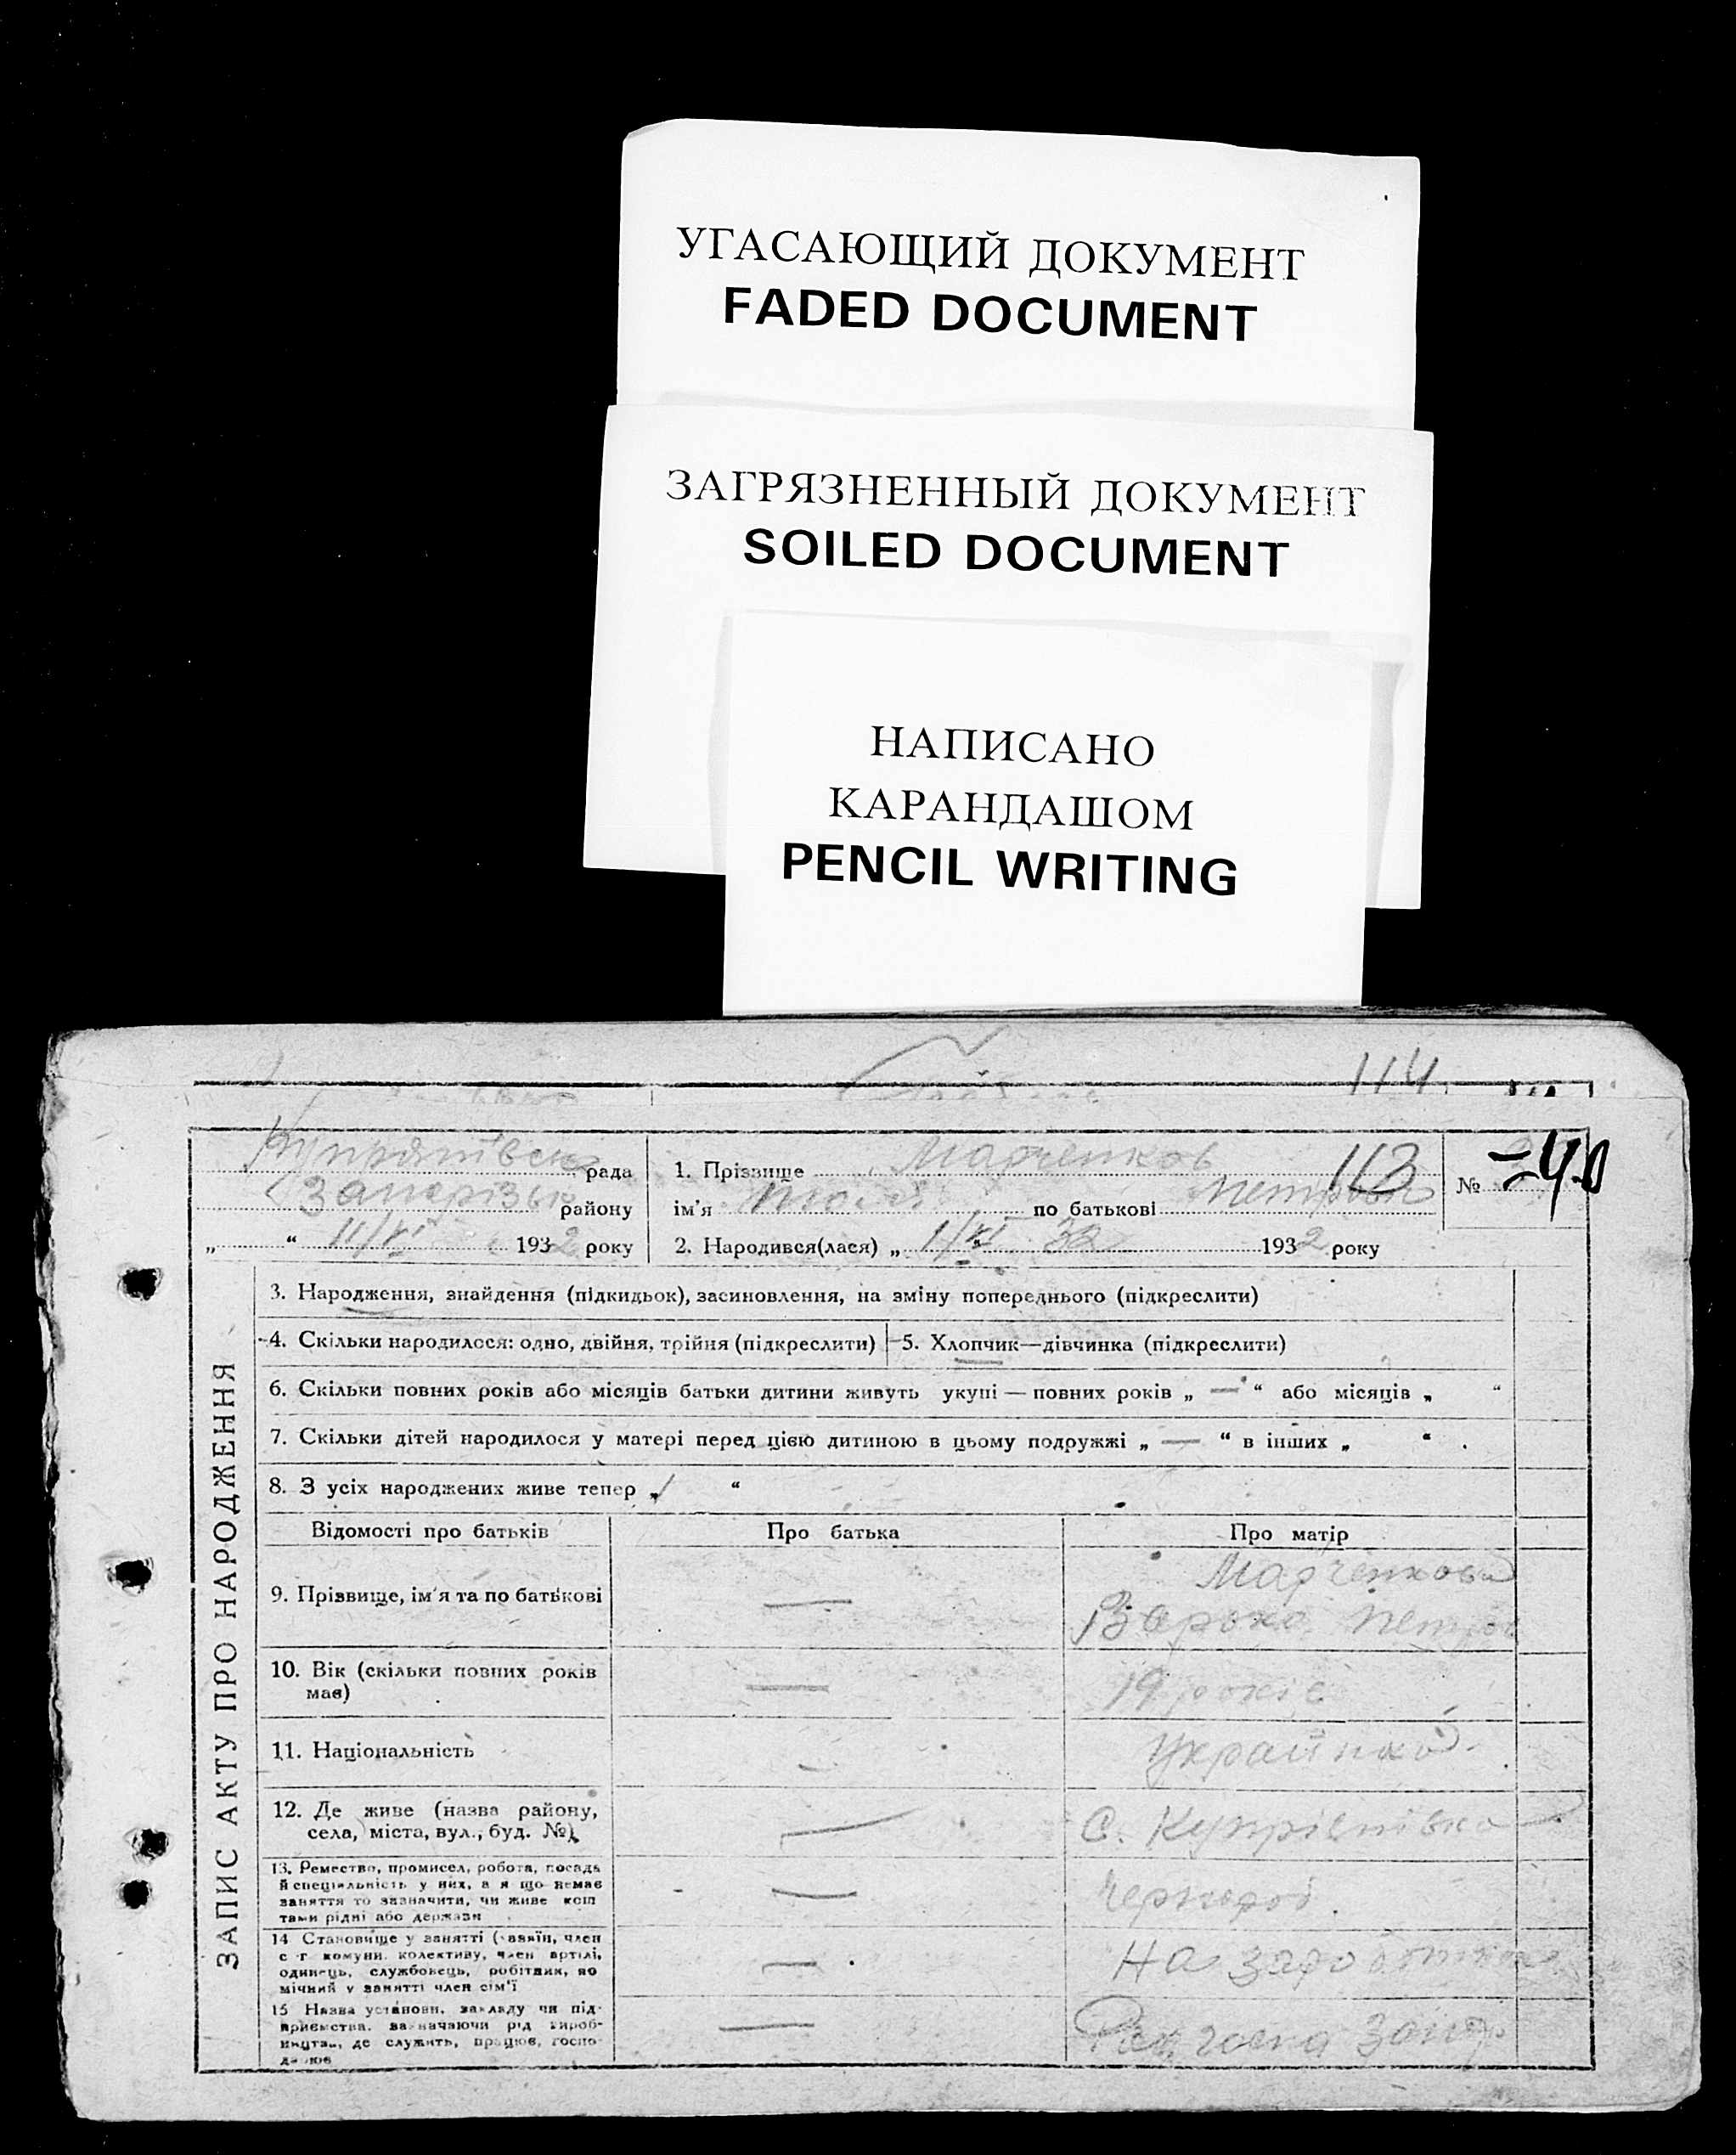 УГАСАЮЩИЙ ДОКУМЕНТ
FADED DOCUMENT
ЗАГРЯЗНЕННЫЙ ДОКУМЕНТ
SOILED DOCUMENT
НАПИСАНО
КАРАНДАШОМ
PENCIL WRITING
114
рада
району
„ “ 11/VI 1932 року
1. Прізвище Марченков 113
ім'я по батькові
№ 40
2. Народився(лася) „ 1/VI 32 1932 року
ЗАПИС АКТУ ПРО НАРОДЖЕННЯ
3. Народження, знайдення (підкидьок), засиновлення, на зміну попереднього (підкреслити)
4. Скільки народилося: одно, двійня, трійня (підкреслити)
5. Хлопчик—дівчинка (підкреслити)
6. Скільки повних років або місяців батьки дитини живуть укупі — повних років „ — “ або місяців „ “
7. Скільки дітей народилося у матері перед цією дитиною в цьому подружжі „ — “ в інших „ “ .
8. З усіх народжених живе тепер „ 1 “
Відомості про батьків
Про батька
Про матір
9. Прізвище, ім'я та по батькові
—
Марченкова
10. Вік (скільки повних років
має)
—
19 років
11. Національність
—
Українка
12. Де живе (назва району,
села, міста, вул., буд. №)
—
с.
13. Ремество, промисел, робота, посада
й спеціяльність у них, а я що немає
заняття то зазначити, чи живе кош
тами рідні або держави
—
14 Становище у занятті (хазяїн, член
с г комуни, колективу, член артілі,
одинець, службовець, робітник, по
мічний у занятті член сім'ї
—
на
15 Назва установи, закладу чи під-
приємства, зазначаючи рід вироб-
ництва, де служить, працює, госпо-
дарює
—